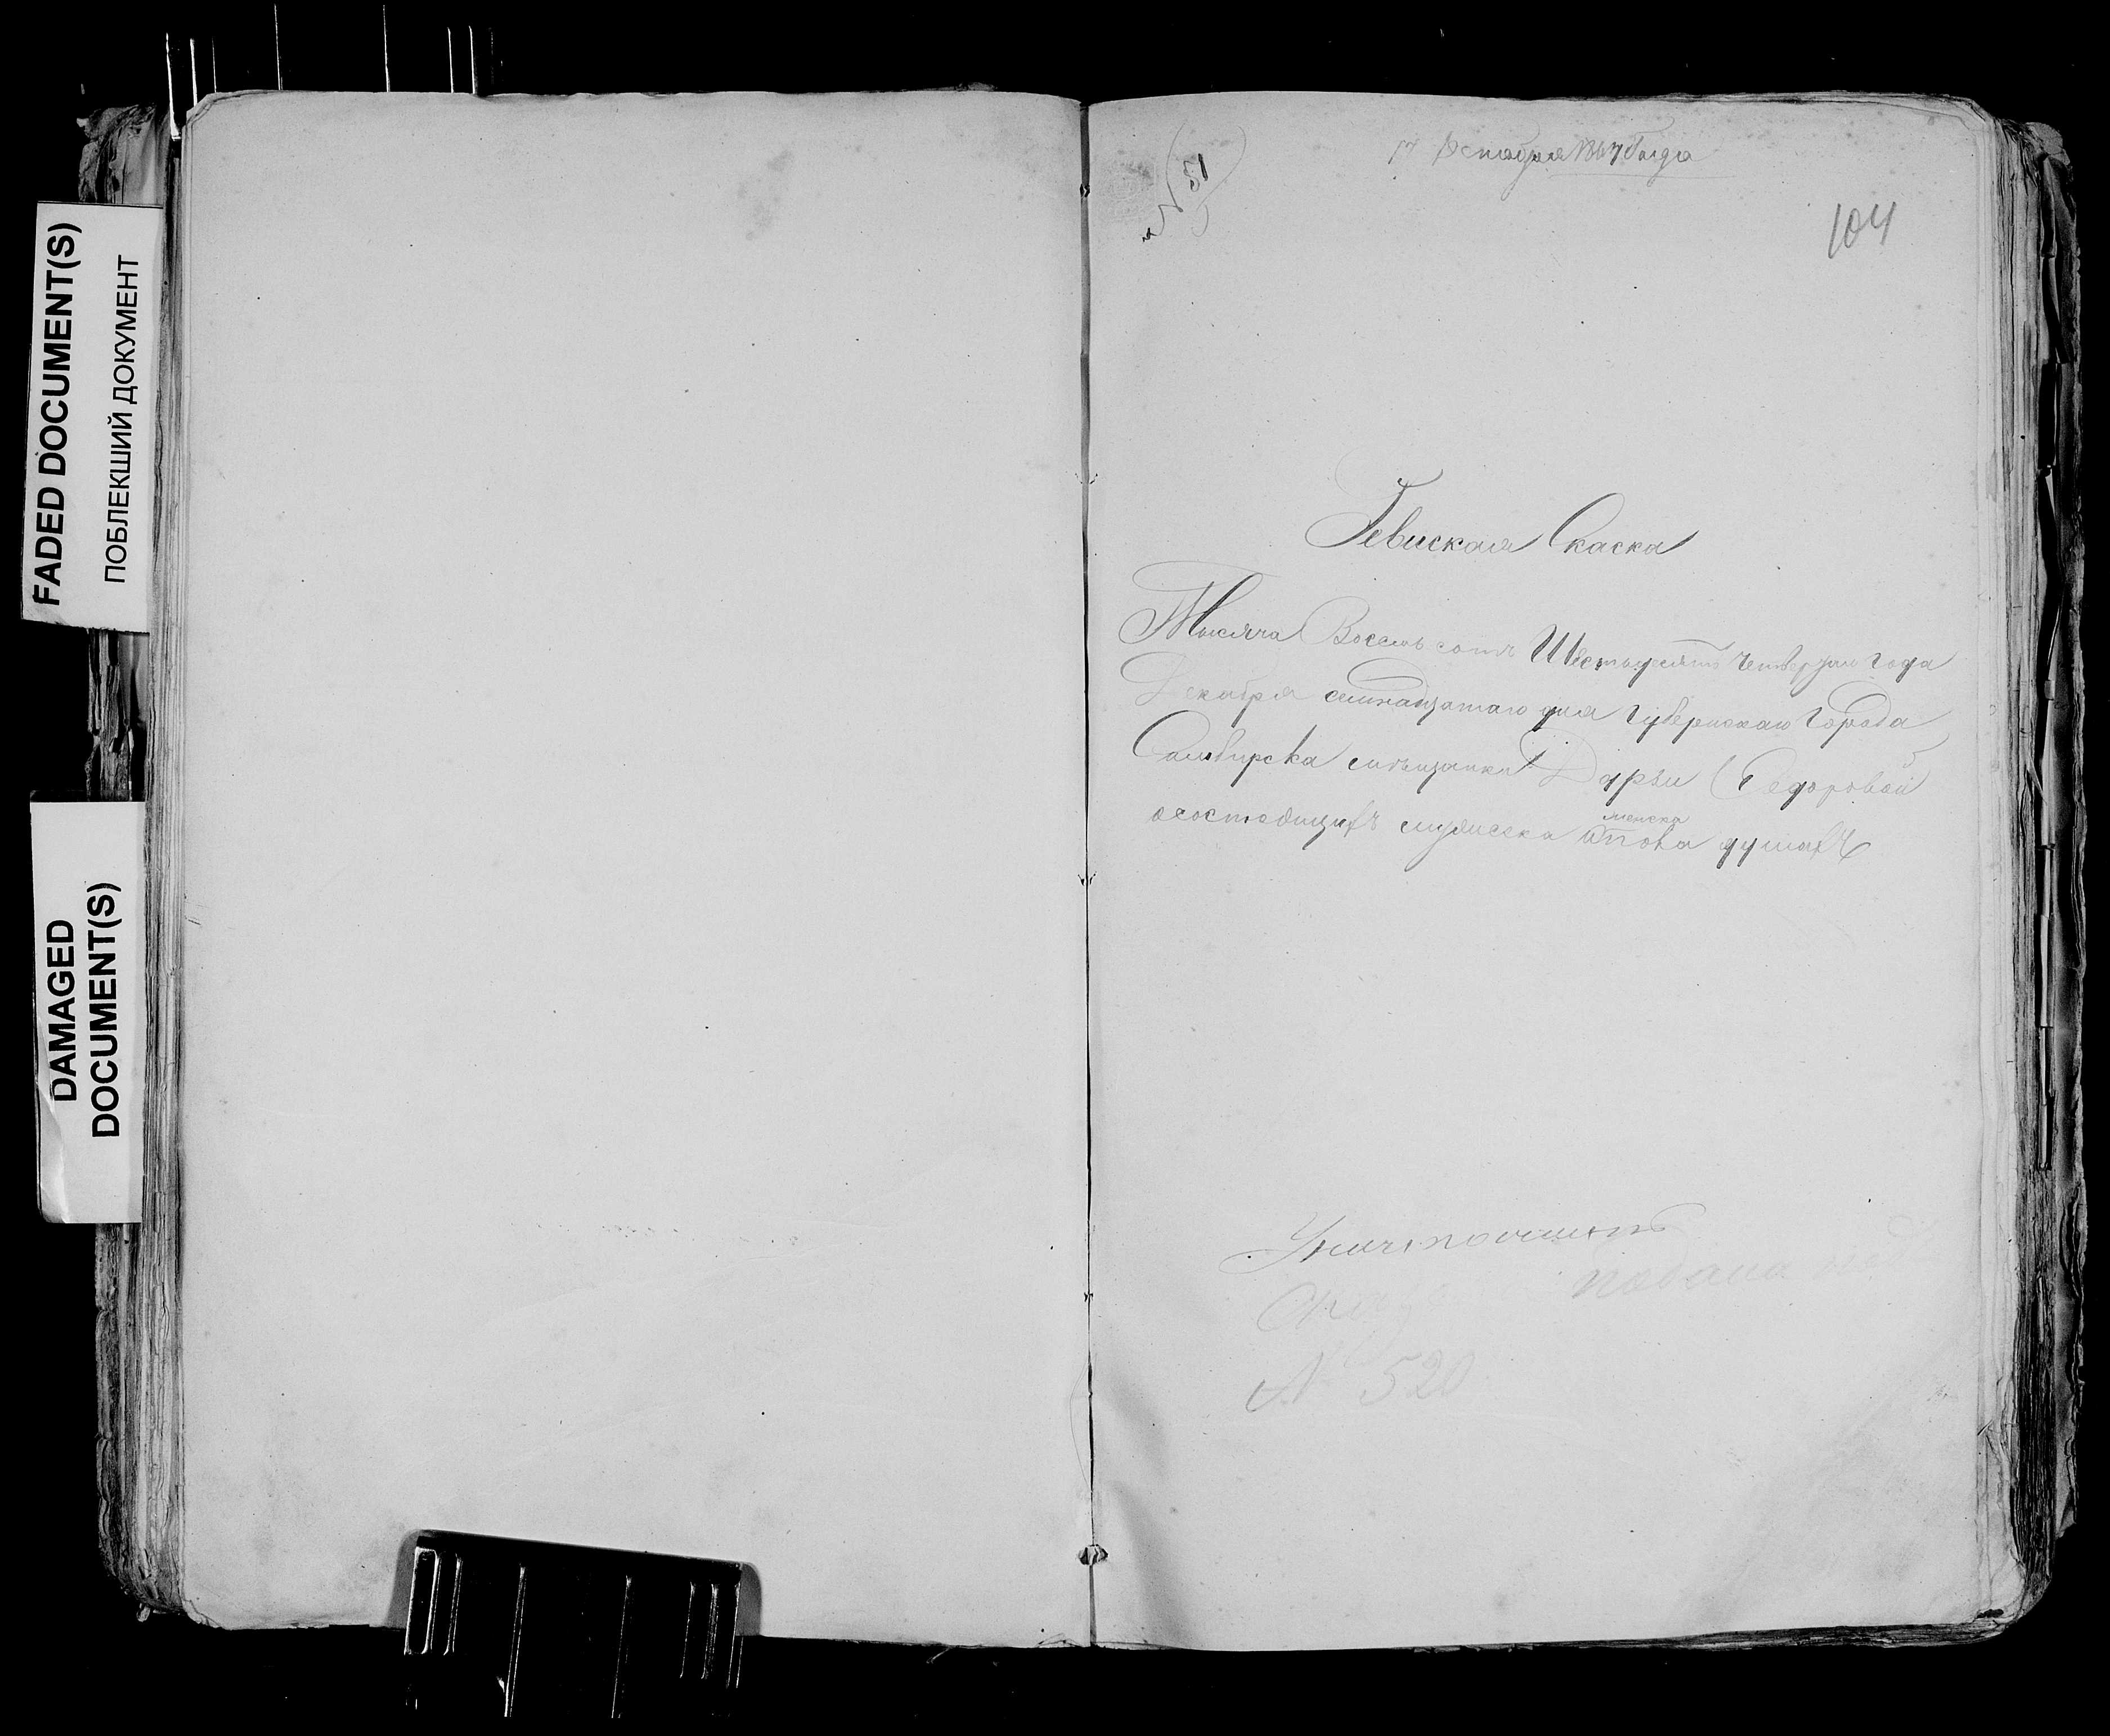 FADED DOCUMENT(S)
ПОБЛЕКШИЙ ДОКУМЕНТ
DAMAGED
DOCUMENT(S)
№ 51
17 Года
104
Ревиская Скаска
Тысяча Восемь сотъ Шестьдесятъ четвертаго года
Декабря семнадцатаго дня Губернскаго Города
Симбирска мещанки Дарьи Федоровой
осостоящихъ мужеска
женска
пола душахъ
подана
№ 520